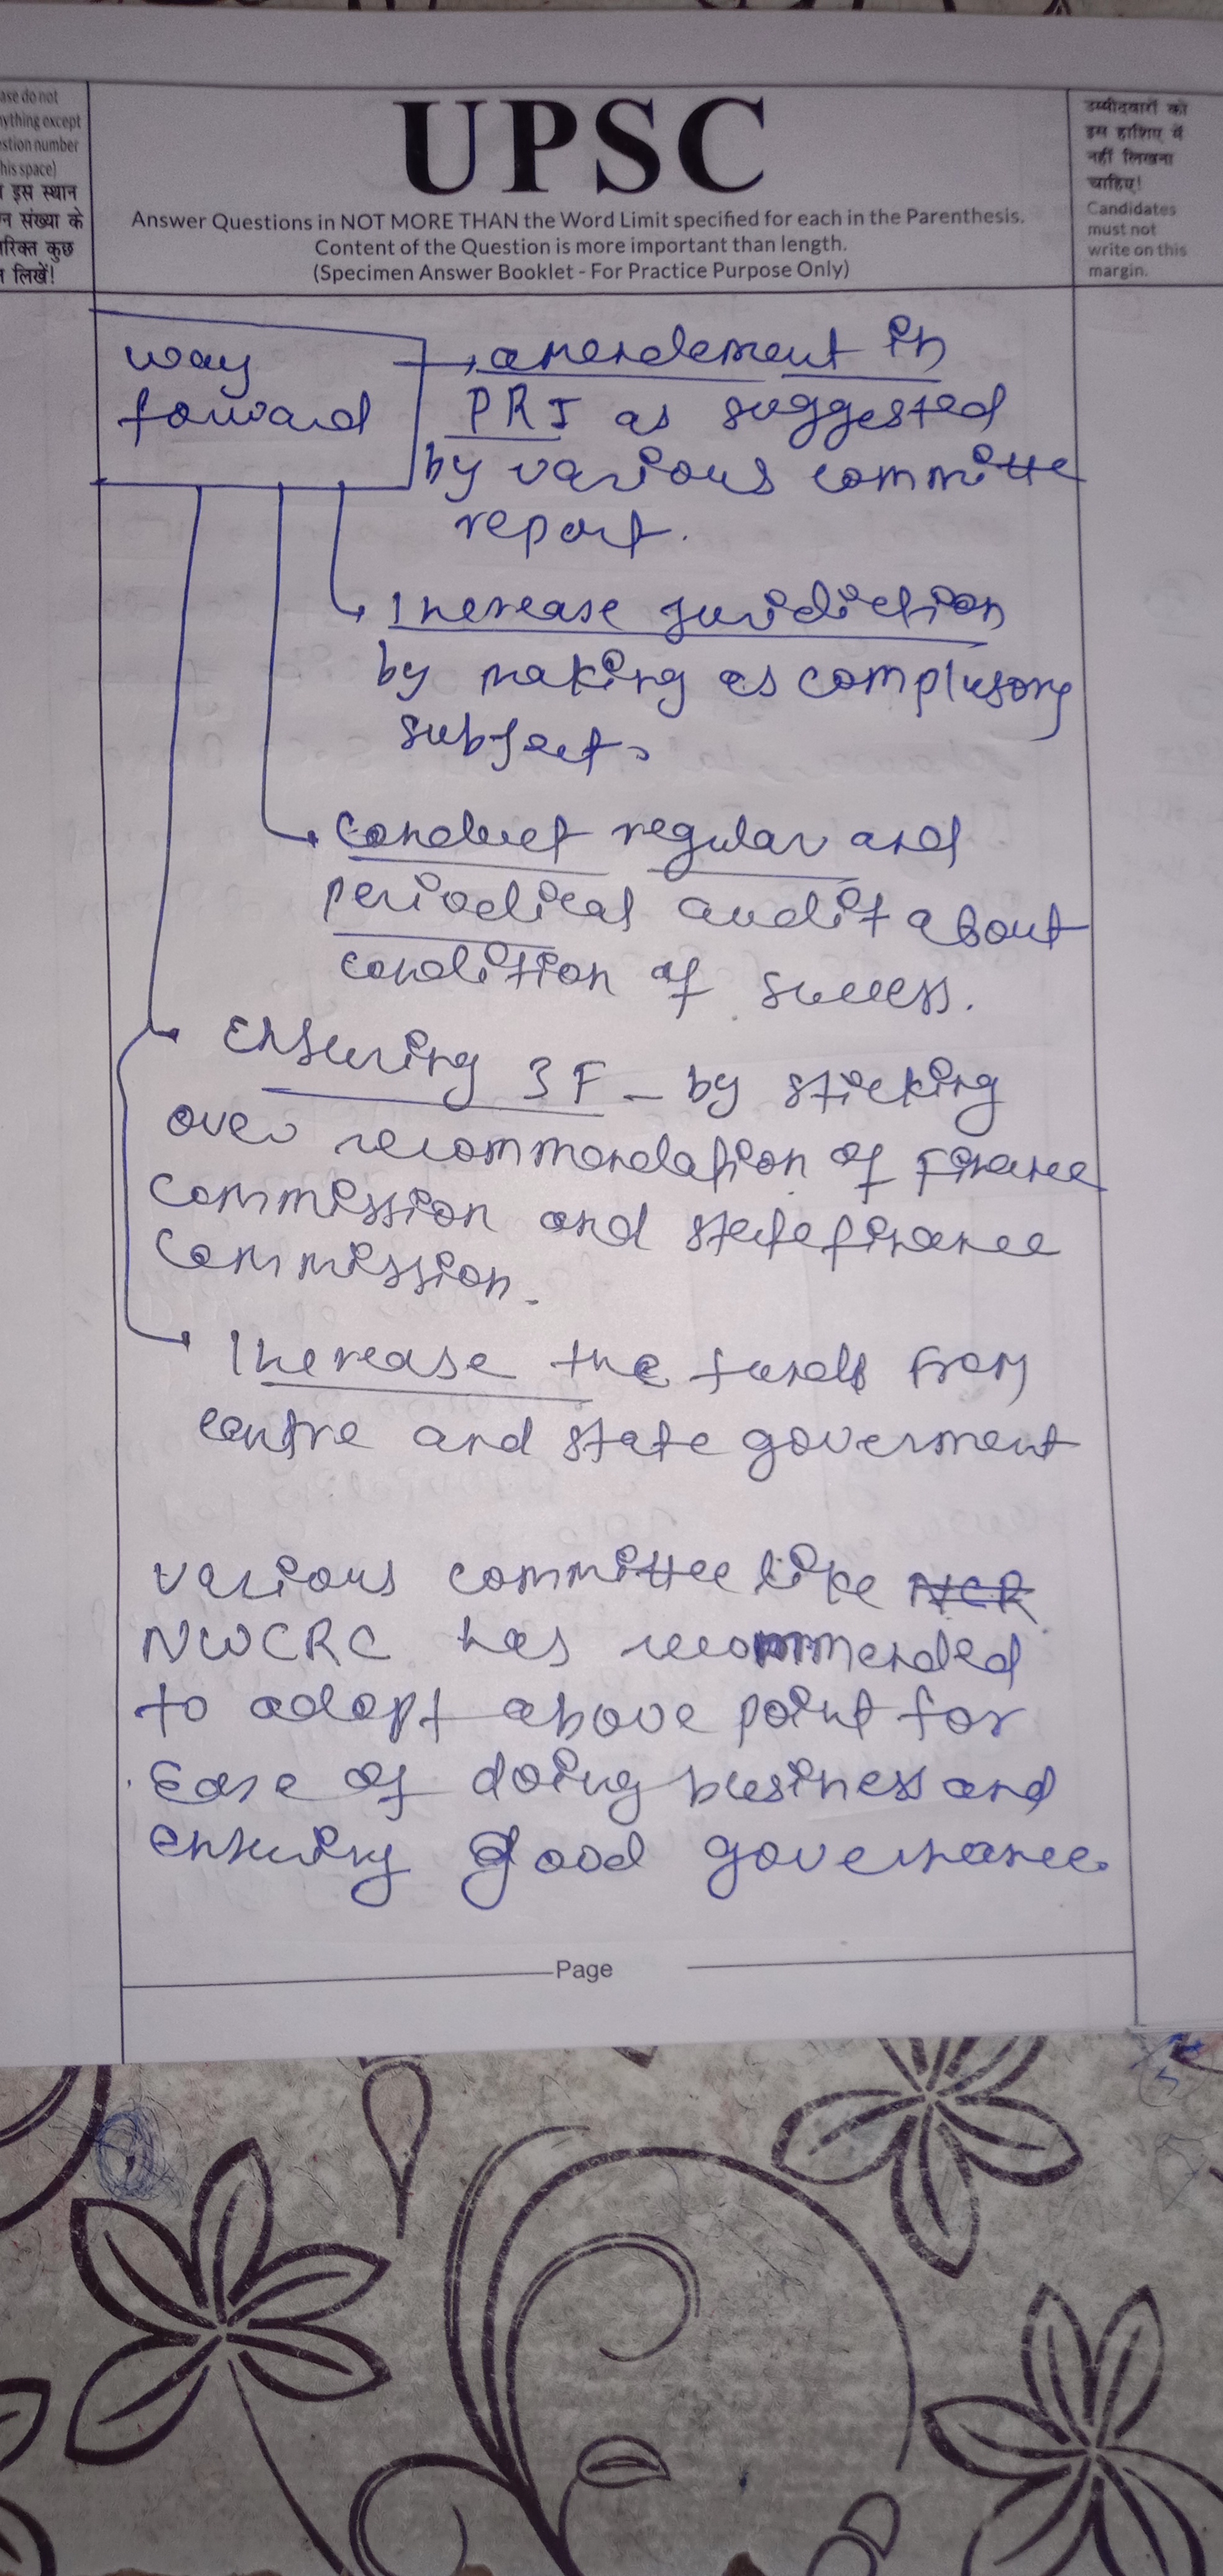 ase do not
nything except
estion number
this space)
इस स्थान
न संख्या के
रिक्त कुछ
लिखें!
UPSC
Answer Questions in NOT MORE THAN the Word Limit specified for each in the Parenthesis.
Content of the Question is more important than length.
(Specimen Answer Booklet - For Practice Purpose Only)
उम्मीदवारों को
इस हाशिए में
नहीं लिखना
चाहिए!
Candidates
must not
write on this
margin.
way
forward
→ amendement in
PRI as suggested
by various committe
report.
Increase juridiction
by making as complusory
subject.
conduct regular and
periodical audit about
condition of success.
Ensuring 3F - by sticking
over recommendation of Finance
commission and state finance
commission.
Increase the funds from
centre and state goverment
various committee like NCR
NWCRC has recommended
to adopt above point for
Ease of doing business and
ensuring good governance.
Page